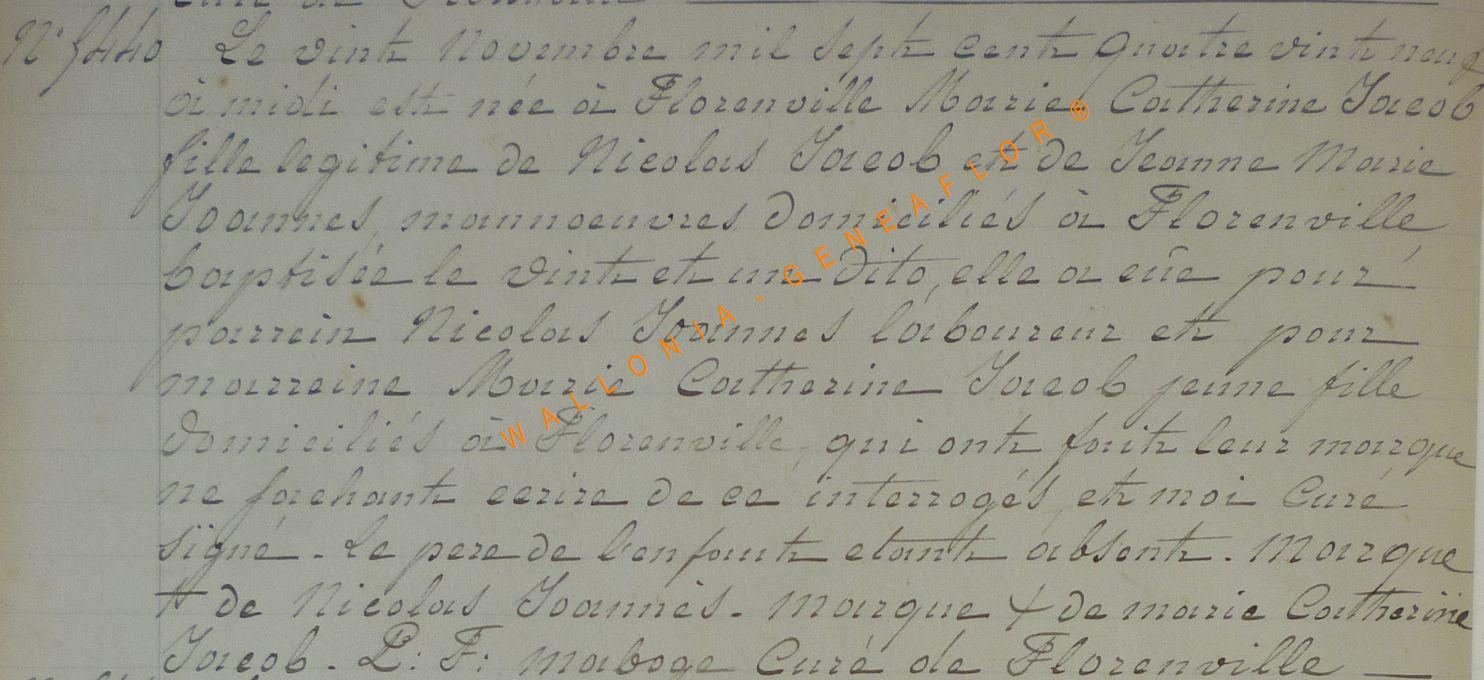 curé de Florenville
N° 5440 Le vint Novembre mil sept cent quatre vint neuf
à midi est née à Florenville Marie Catherine Jacob
fille legitime de Nicolas Jacob et de Jeanne Marie
Joannes, mannoeuvres domiciliés à Florenville,
baptisée le vint et un dito, elle a eûe pour
parrein Nicolas Joannes laboureur et pour
marreine Marie Catherine Jacob jeune fille
domiciliés à Florenville, qui ont fait leur marque
ne sachant ecrire de ce interrogés et moi Curé
signé. Le pere de l'enfant etant absent. Marque
+ de Nicolas Joannès. marque + de marie Catherine
Jacob. P: F: maboge Curé de Florenville
WALLONIA - GENEAFLOR ®